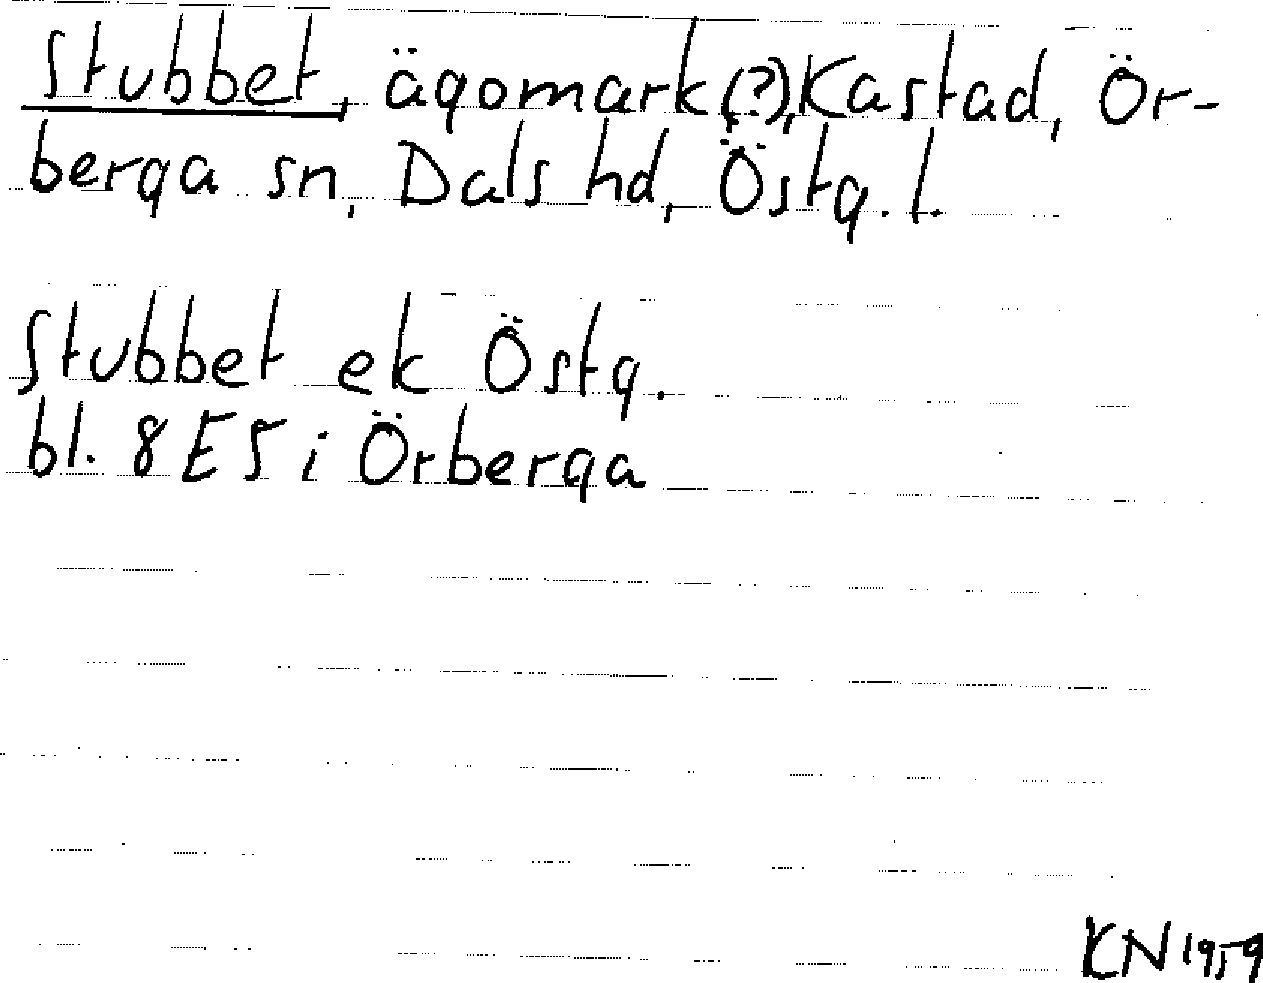 Stubbet, ägomark(?), Kastad, Ör-
berga sn, Dals hd, Östg. l.
Stubbet ek Östg.
bl. 8 E5 i Örberga
KN 1959